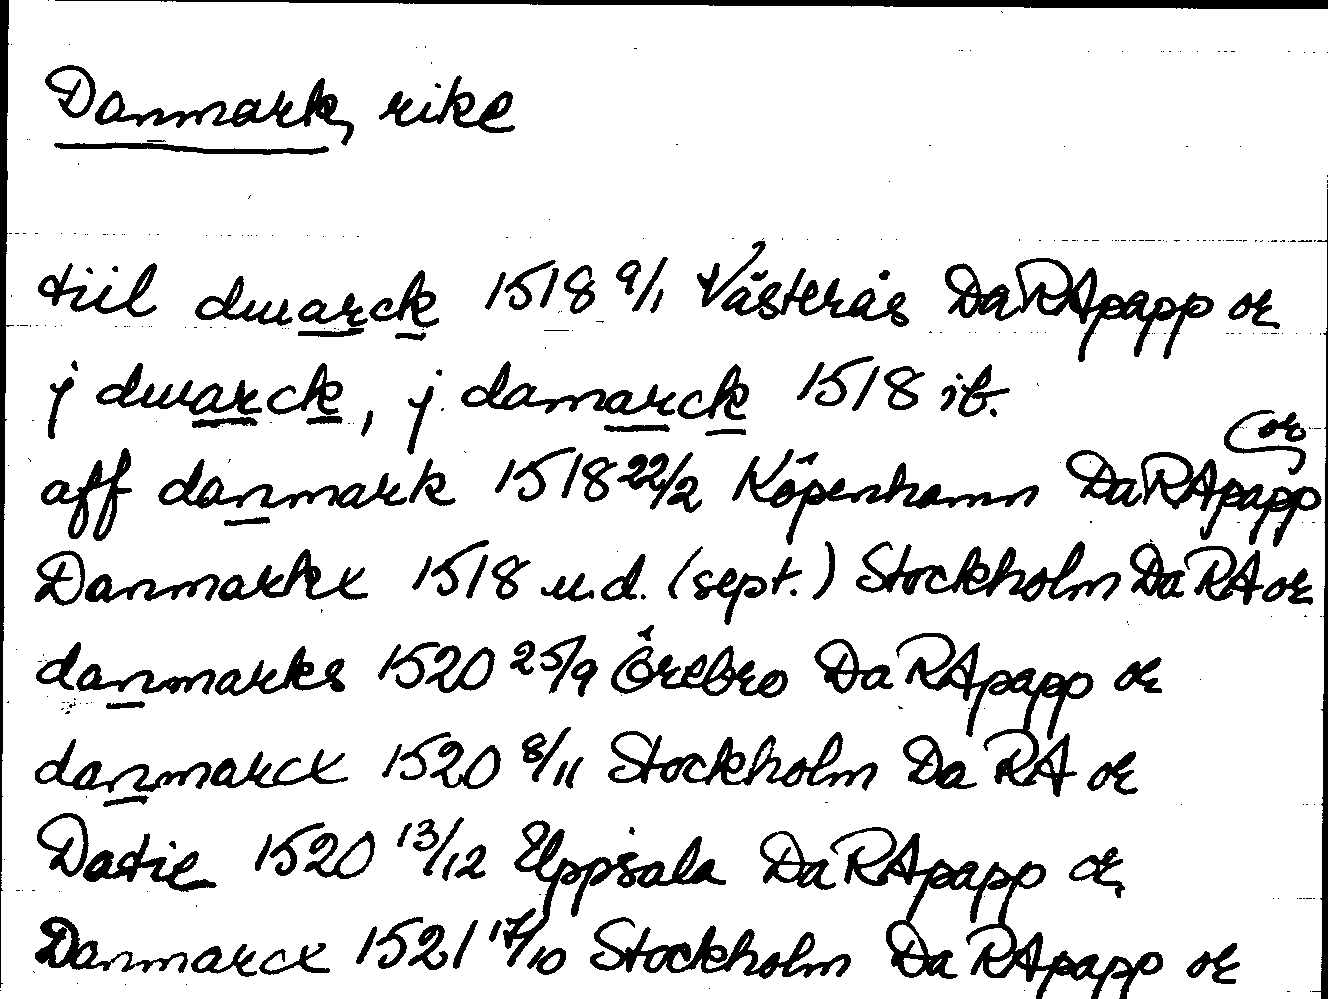 Danmark, rike
tiil dmarck 1518 9/1 Västerås DaRApapp or
j dmarck, j damarck 1518 ib.
(or
aff danmark 1518 22/2 Köpenhamn DaRApapp
Danmarkx 1518 u.d. (sept.) Stockholm DaRA or
danmarks 1520 25/9 Örebro DaRApapp or
danmarcx 1520 8/11 Stockholm DaRA or
Datie 1520 13/12 Uppsala DaRApapp or,
Danmarcx 1521 17/10 Stockholm DaRApapp or